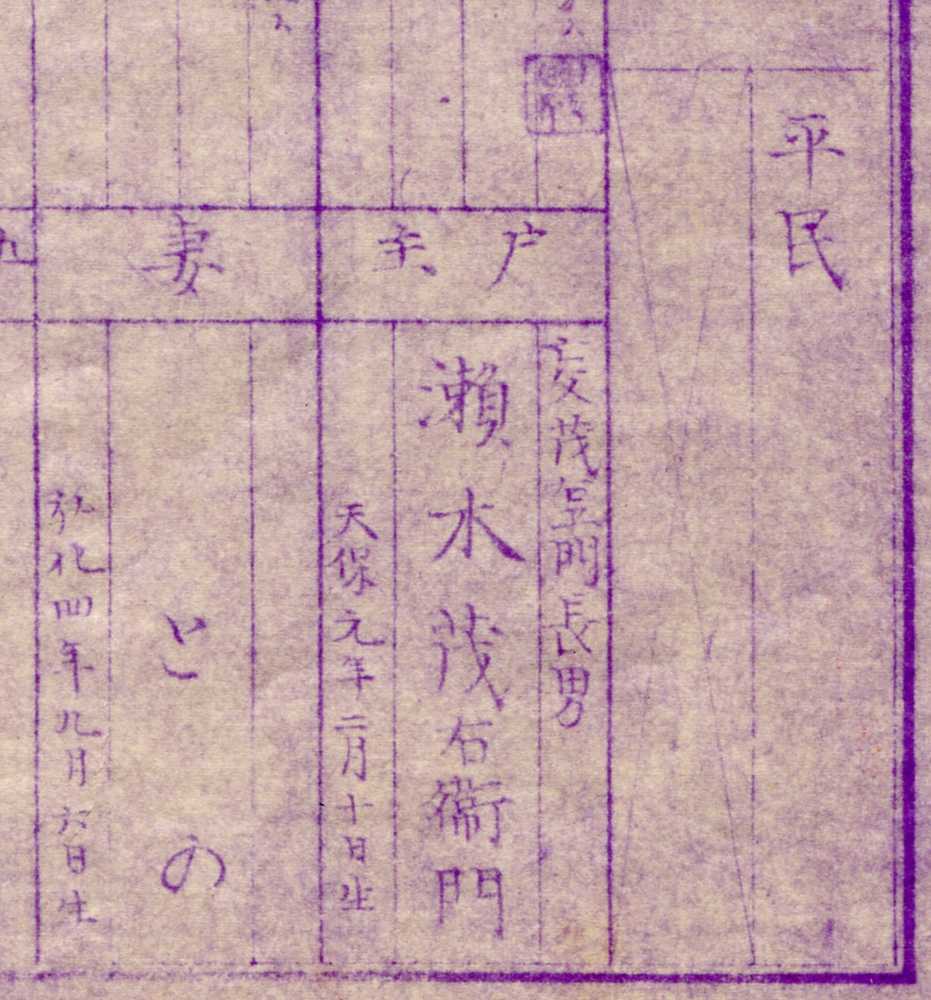 平民
戸主
亡父茂門長男
瀬水茂右衛門
天保元年二月十日生
妻
との
弘化四年九月六日生